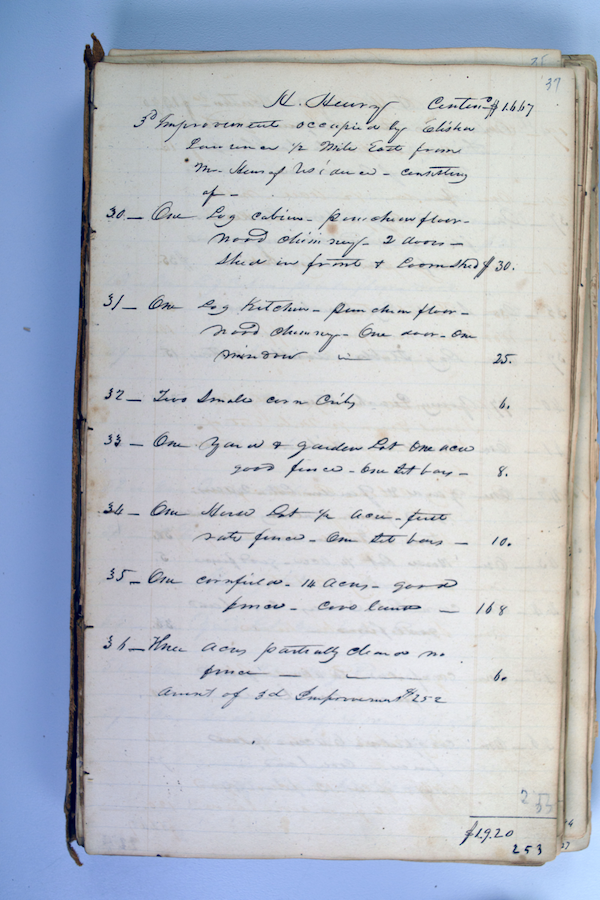 37
H. Henry Contind $1667
3d Improvement occupied by Elisha
1/2 Mile East from
Mr Henrys residence - consisting
of -
30 - One Log cabin - puncheon floor -
wood chimney - 2 doors -
shed in front & Loomshed $30.
31 - One Log Kitchen - puncheon floor -
wood chimney - One door - one
window 25.
32 - Two Small corn Cribs 6.
33 - One yard & garden Lot One acre
good fence - one set bars - 8.
34 - One Horse Lot 1/2 acre - first
rate fence - One set bars - 10.
35 - One cornfield - 14 acres - good
fence - land - 168
36 - Three acres partially cleard no
fence - - 6.
Amnt of 3d Improvement $252
253
$1920
253